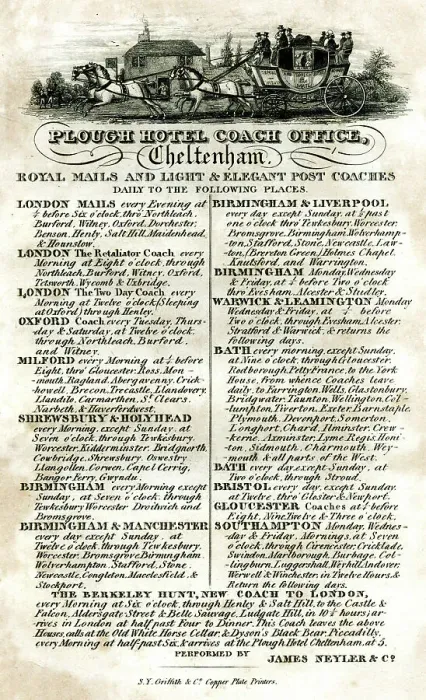 PLOUGH HOTEL COACH OFFICE,
Cheltenham.
ROYAL MAILS AND LIGHT & ELEGANT POST COACHES
DAILY TO THE FOLLOWING PLACES.
LONDON MAILS every Evening at
¼ before Six o'clock, thro' Northleach,
Burford, Witney, Oxford, Dorchester,
Benson, Henly, Salt Hill, Maidenhead,
& Hounslow.
LONDON The Retaliator Coach, every
Morning at Eight o'clock, through
Northleach, Burford, Witney, Oxford,
Tetsworth, Wycomb & Uxbridge.
LONDON The Two Day Coach, every
Morning at Twelve o'clock (Sleeping
at Oxford) through Henly.
OXFORD Coach every Tuesday, Thurs-
day & Saturday, at Twelve o'clock,
through Northleach, Burford,
and Witney.
MILFORD every Morning at ¼ before
Eight, thro' Gloucester, Ross, Mon-
mouth, Ragland, Abergavenny, Crick-
howell, Brecon, Trecastle, Llandovery,
Llandilo, Carmarthen, St. Clears,
Narbeth, & Haverfordwest.
SHREWSBURY & HOLYHEAD
every Morning, except Sunday, at
Seven o'clock, through Tewkesbury,
Worcester, Kidderminster, Bridgnorth,
Cowbridge, Shrewsbury, Oswestry,
Llangollen, Corwen, Capel Cerrig,
Bangor Ferry, Gwyndu.
BIRMINGHAM every Morning except
Sunday, at Seven o'clock, through
Tewkesbury Worcester Droitwich and
Bromsgrove.
BIRMINGHAM & MANCHESTER
every day except Sunday, at
Twelve o'clock, through Tewkesbury,
Worcester, Bromsgrove, Birmingham,
Wolverhampton, Stafford, Stone,
Newcastle, Congleton, Macclesfield, &
Stockport.
BIRMINGHAM & LIVERPOOL
every day except Sunday, at ¼ past
one o'clock thro' Tewksbury, Worcester,
Bromsgrove, Birmingham, Wolverhamp-
ton, Stafford, Stone, Newcastle, Law-
ton, (Brereton Green) Holmes Chapel,
Knutsford, and Warrington.
BIRMINGHAM Monday, Wednesday
& Friday, at ¼ before Two o'clock
thro' Evesham, Alcester & Studley.
WARWICK & LEAMINGTON Monday
Wednesday & Friday, at ¼ before
Two o'clock, through Evesham, Alcester,
Stratford & Warwick, & returns the
following days.
BATH every morning, except Sunday,
at Nine o'clock, through Gloucester,
Rodborough, Petty France, to the York
House, from whence Coaches leave
daily, to Farrington, Wells, Glastonbury,
Bridgwater, Taunton, Wellington, Col-
lumpton, Tiverton, Exeter, Barnstaple,
Plymouth, Devonport, Somerton,
Longport, Chard, Ilminster, Crew-
kerne, Axminster, Lyme Regis, Honi-
ton, Sidmouth, Charmouth, Wey-
mouth & all parts of the West.
BATH every day, except Sunday, at
Two o'clock, through Stroud.
BRISTOL every day, except Sunday,
at Twelve, thro' Gloster & Newport.
GLOUCESTER Coaches at ¼ before
Eight, Nine, Twelve & Three o'clock.
SOUTHAMPTON Monday, Wednes-
day & Friday, Mornings, at Seven
o'clock, through Cirencester, Cricklade,
Swindon, Marlborough, Burbage, Col-
lingburn, Luggershall, Weyhill, Andover,
Werwell & Winchester in Twelve hours &
Return the following days.
THE BERKELEY HUNT, NEW COACH TO LONDON,
every Morning at Six o'clock, through Henly & Salt Hill, to the Castle &
Falcon, Aldersgate Street & Belle Sauvage, Ludgate Hill, in 10½ hours; ar-
rives in London at half past Four to Dinner. This Coach leaves the above
Houses, calls at the Old White Horse Cellar, & Dyson's Black Bear, Piccadilly,
every Morning at half-past Six, & arrives at the Plough Hotel Cheltenham, at 5.
PERFORMED BY
JAMES NEYLER & Co.
S.Y. Griffith & Co. Copper Plate Printers.